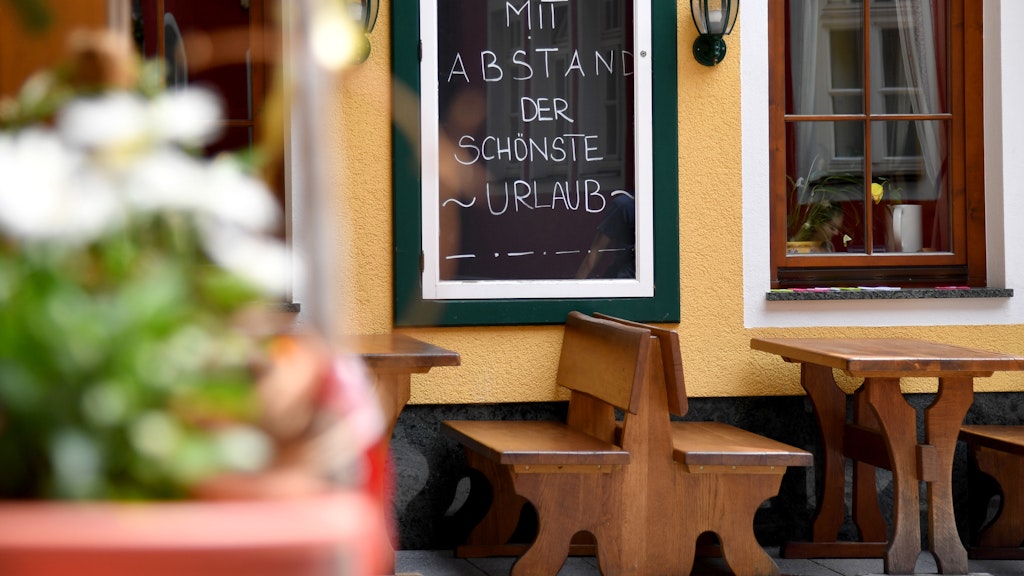 MIT
ABSTAND
DER
SCHÖNSTE
~ URLAUB ~